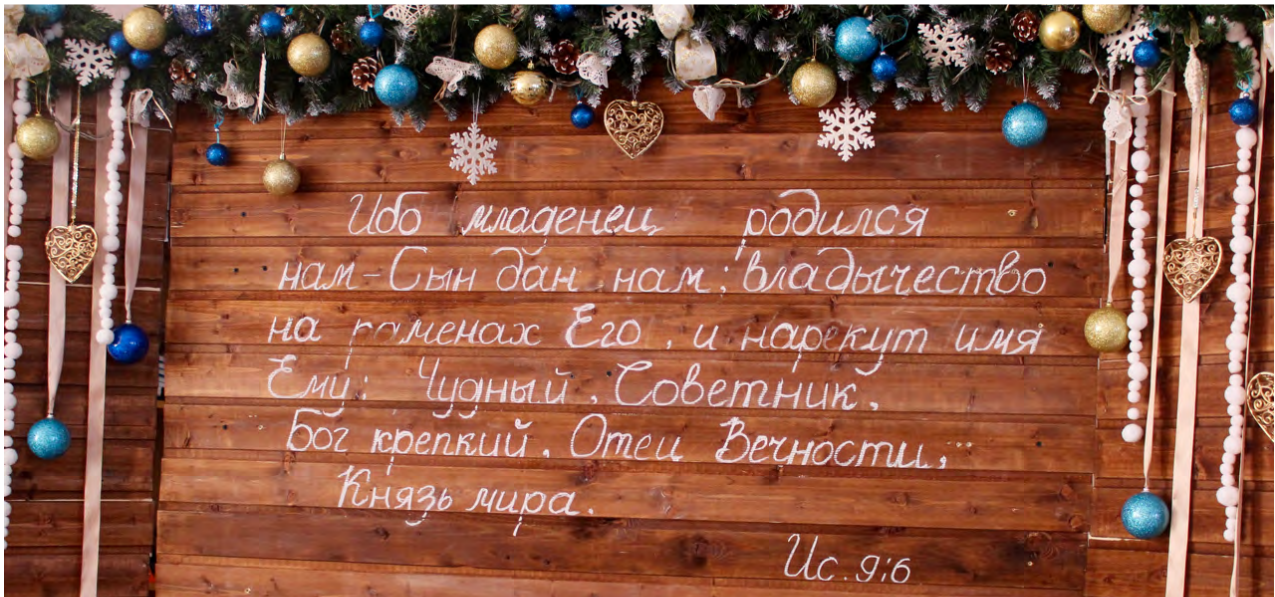 Ибо младенец родился
нам - Сын дан нам; владычество
на раменах Его, и нарекут имя
Ему: Чудный, Советник,
Бог крепкий, Отец Вечности,
Князь мира.
Ис. 9:6